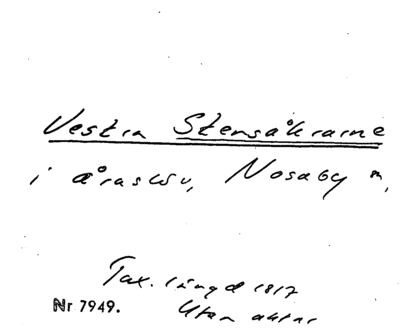 Vestra Stensåkrarne
i Åraslöv, Nosaby m,
Tax. längd 1817
Nr 7949. Utan aktnr